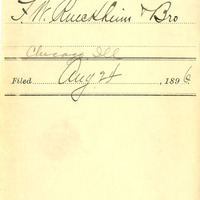 F. W. Rueckheim & Bro
Chicago, Ill
Filed Aug 24, 1896